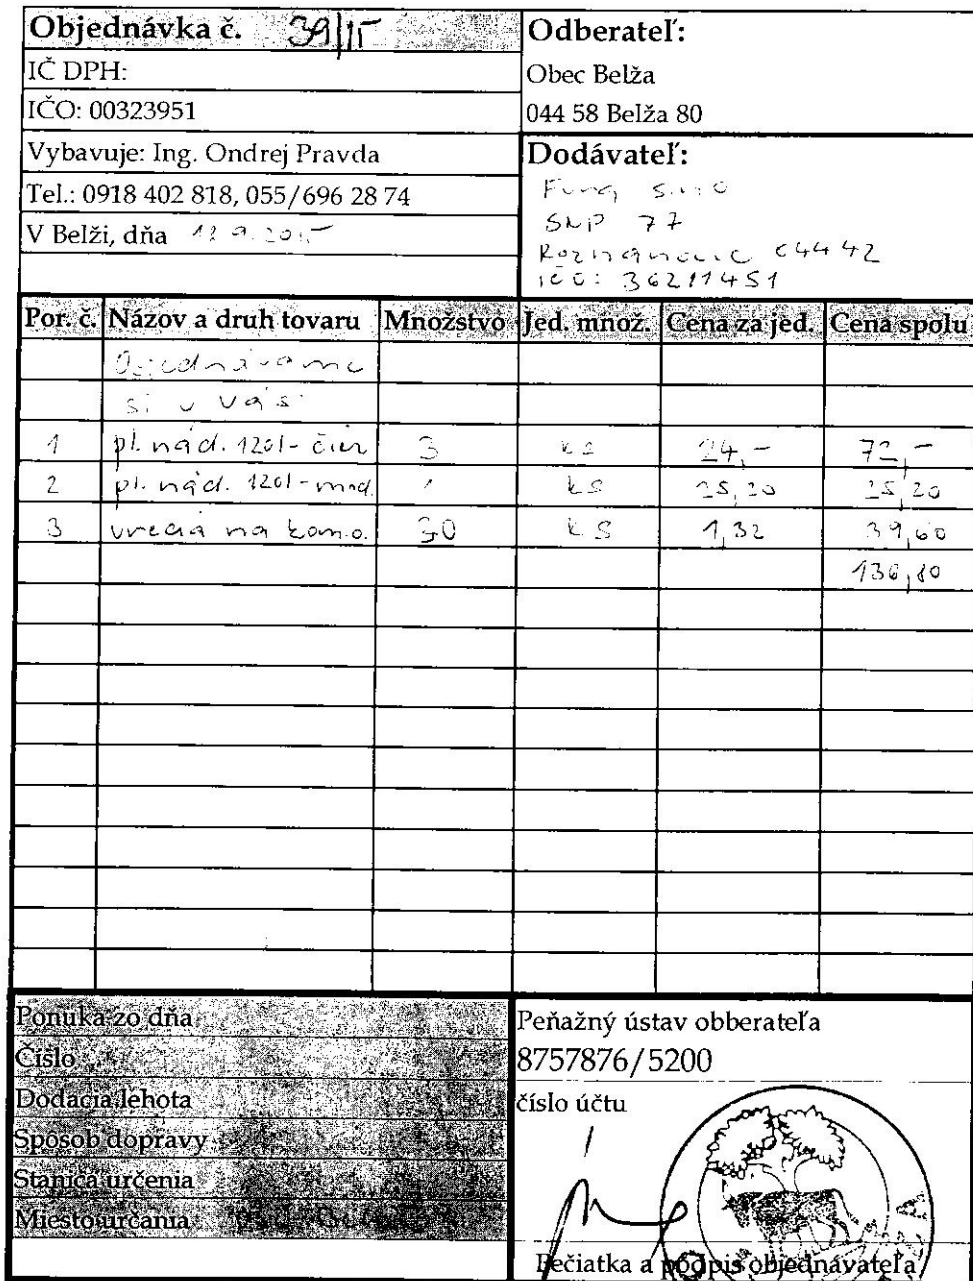 Objednávka č. 39/15
IČ DPH:
IČO: 00323951
Vybavuje: Ing. Ondrej Pravda
Tel.: 0918 402 818, 055/696 28 74
V Belži, dňa
Odberateľ:
Obec Belža
044 58 Belža 80
Dodávateľ:
Fura s.r.o
SNP 77
Rozhanovce 04442
IČO: 36211451
Por. č. Názov a druh tovaru Množstvo Jed. množ. Cena za jed. Cena spolu
Objednávame
si u Vás
1 pl. nád. 120l - čier 3 ks 24,- 72,-
2 pl. nád. 120l - mod. 1 ks 25,20 25,20
3 vrecia na kom.o. 30 ks 1,32 39,60
136,80
Ponuka zo dňa
Číslo
Dodacia lehota
Spôsob dopravy
Stanica určenia
Miesto určania
Peňažný ústav obberateľa
8757876/5200
číslo účtu
Pečiatka a podpis objednávateľa